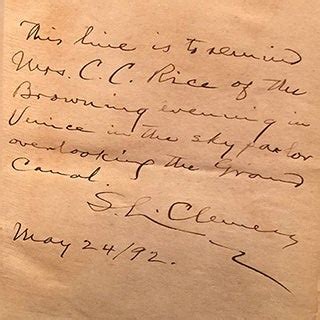 This line is to remind
Mrs. C. C. Rice of the
Browning evening in
Venice in the sky parlor
overlooking the Grand
Canal.
S. L. Clemens
May 24/92.